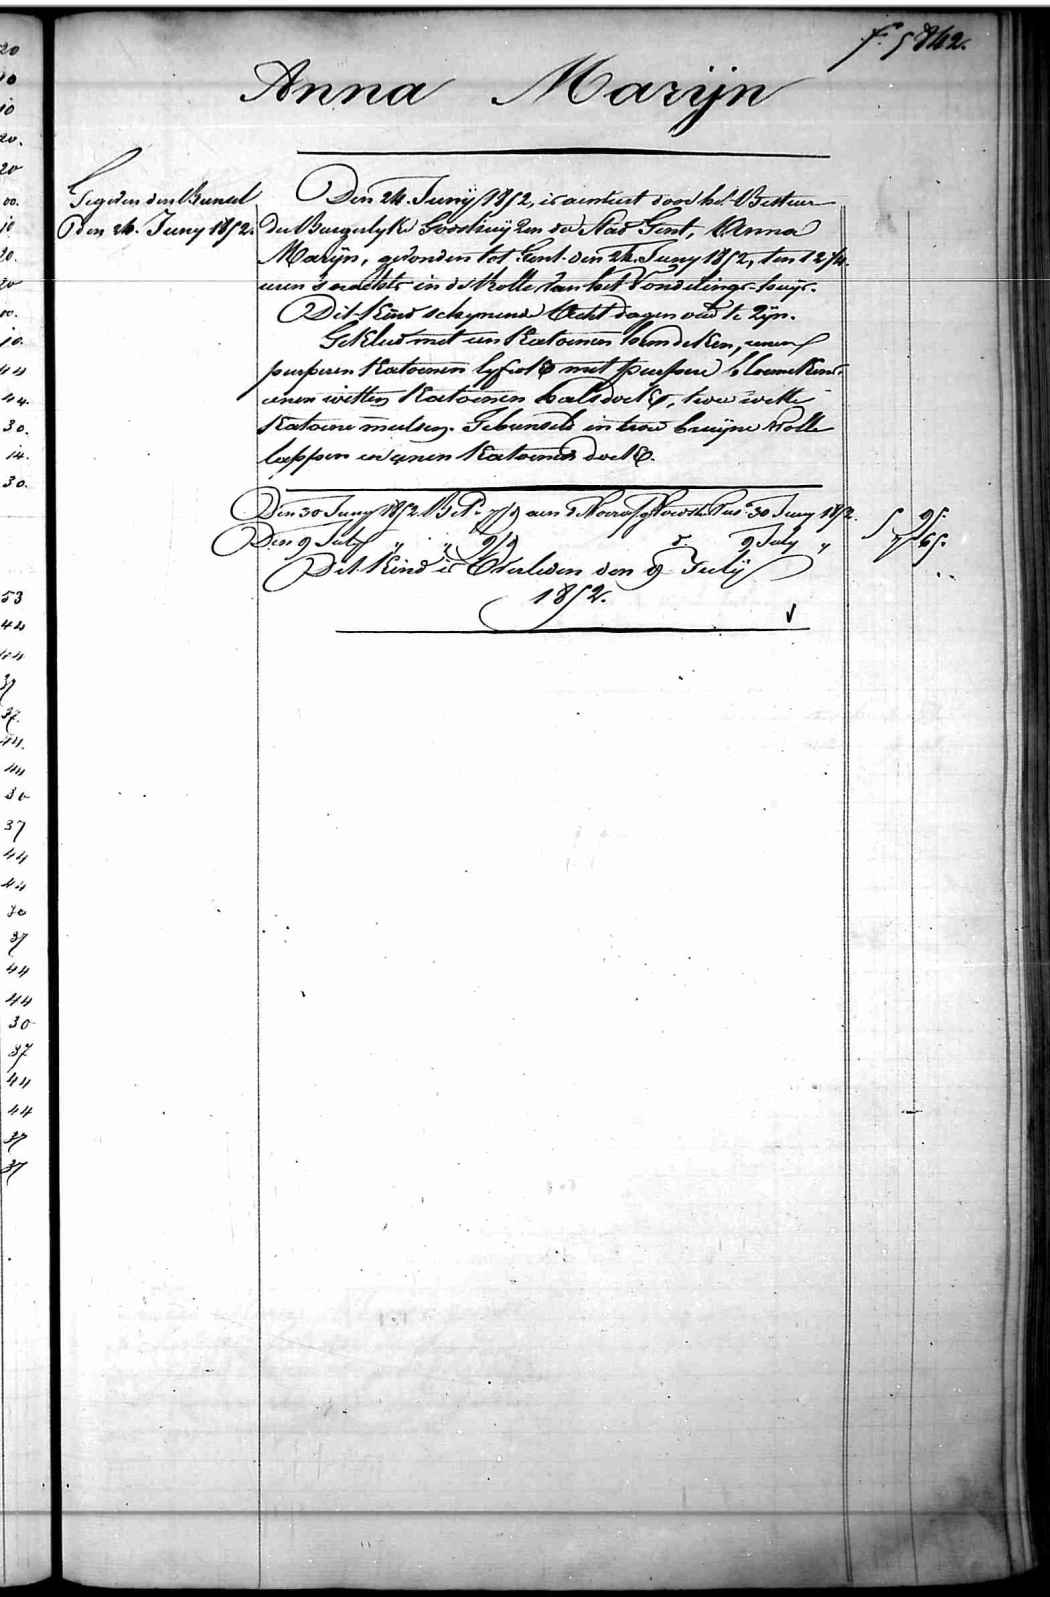 f. 5842.
Anna Marijn
Gegeven den Bundel
Den 24. Juny 1852.
Den 24. Junij 1852, is aenveert door het Bestuer
der Burgerlyke Godshuyzen der Stad Gent, Anna
Marijn, gevonden tot Gent den 24. Juny 1852, ten 12 3/4
uren 's nachts in de Rolle van het Vondelings-huys.
Dit Kind schynende Acht dagen oud te zyn.
Gekleed met een Katoenen hemdeken, eenen
purperen Katoenen lyfrok met purpere bloemekens,
eenen witten Katoenen halsdoek, twee witte
Katoene mutsen. Gebunseld in twee bruyne Wolle
lappen en eenen Katoenen doek.
Den 30 Juny 1852. aen 30 Juny 1852. 5 95.
Den 9 July " " d° 9 July " 65.
Dit Kind is Overleden den 9 Julij
1852.
20
10
10
20.
20
00.
10
20.
20
10.
10.
44
44.
30.
14.
30.
53
44
44
37
37.
44.
44
30
37
44
44
30
37
44
44
30
37
44
44
37
37